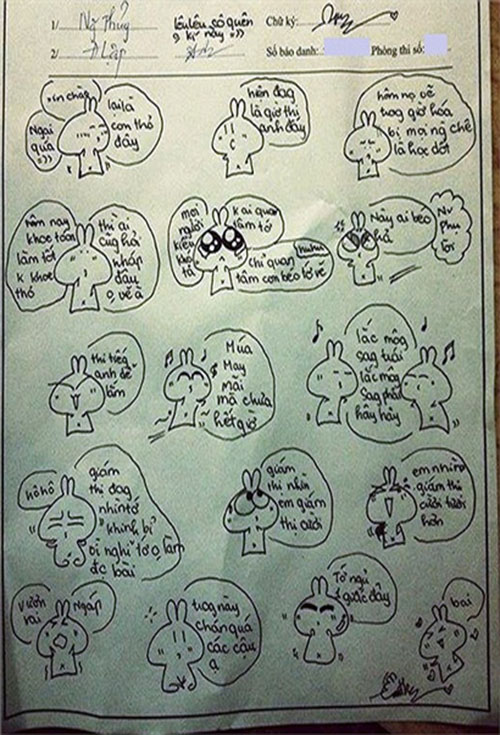 1/ Ng Thủy
2/
lêu lêu số quên
kí này =))
Chữ ký:
Số báo danh:
Phòng thi số:
xin chào
lại là
con thỏ
đây
Ngại
quá
=))
hiện đag
là giờ thi
anh đây
hôm nọ vẽ
trog giờ hóa
bị mọi ng chê
là học dốt
hôm nay
khoe toán
làm tốt
k khoe
thó
thì ai
cũg phải
nháp
đâu
vẽ à
mọi
người
kiểu
k ai quan
tâm tớ
huhu
chỉ quan
tâm con béo tớ vẽ
Này ai béo
hả
thi tiếg
anh dễ
lắm
Múa
May
mãi
mà chưa
hết giờ
lắc môg
sag trái
lắc môg
sag phải
hây hây
hô hô
giám
thị đag
nhìn tớ
khinh bỉ
vì nghĩ tớ
làm
đc bài
giám
thị nhìn
em giám
thị cười
em nhìn
giám thị
cười tươi
hơn
vươn
vai
Ngáp
trog này
chán quá
các cậu
ạ
Tớ ngủ
đây
bai